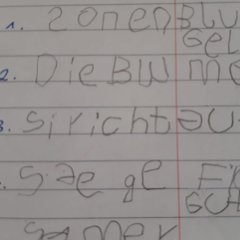 1. ZonenBlu
GeL
2. DieBlume
3. Sirichtau
Sae ge Fr
Gut
samer